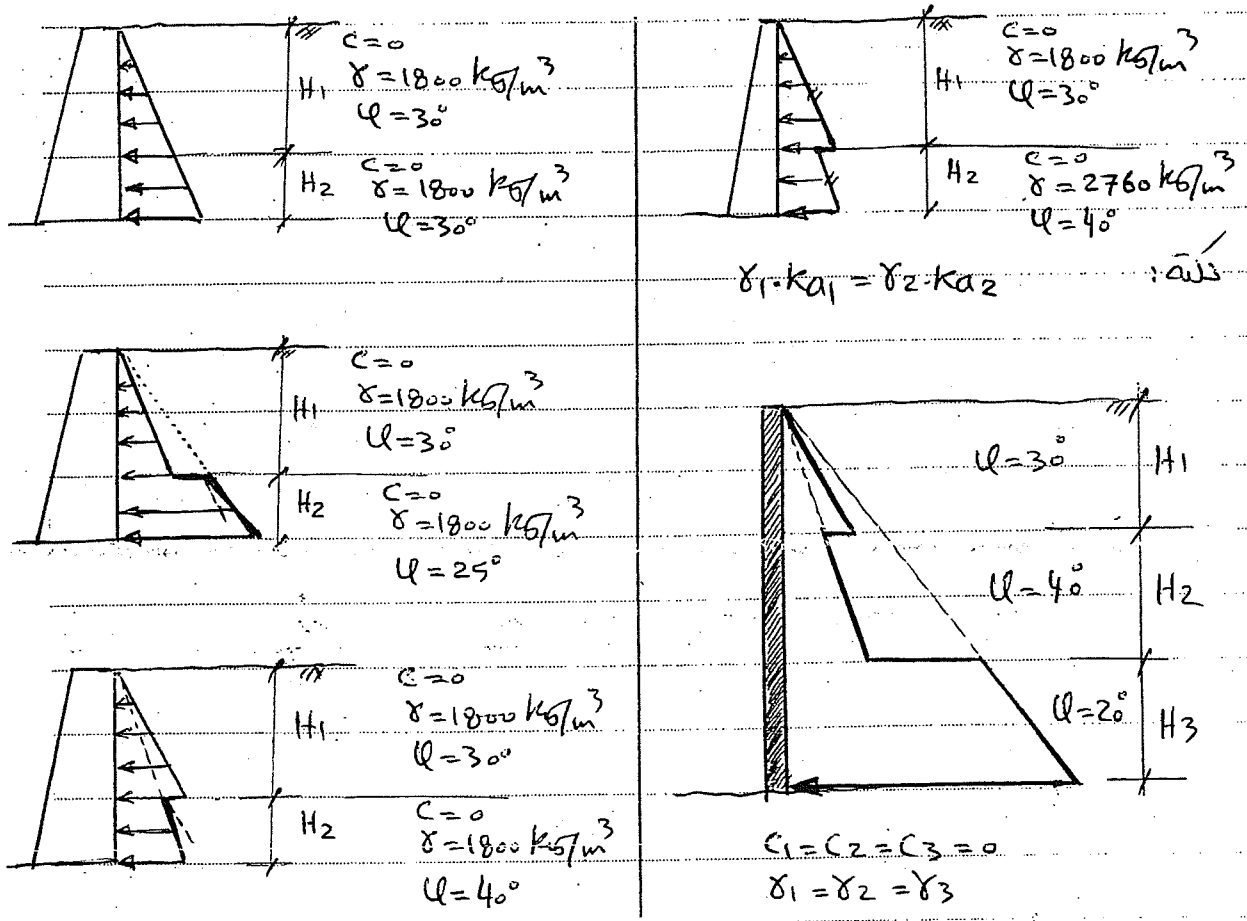 C=0
γ=1800 kg/m³
φ=30°
H1
C=0
γ=1800 kg/m³
φ=30°
H2
C=0
γ=1800 kg/m³
φ=30°
H1
C=0
γ=1800 kg/m³
φ=25°
H2
C=0
γ=1800 kg/m³
φ=30°
H1
C=0
γ=1800 kg/m³
φ=40°
H2
C=0
γ=1800 kg/m³
φ=30°
H1
C=0
γ=2760 kg/m³
φ=40°
H2
نکته:
γ1.ka1 = γ2.ka2
φ=30° H1
φ=40° H2
φ=20° H3
C1=C2=C3=0
γ1=γ2=γ3